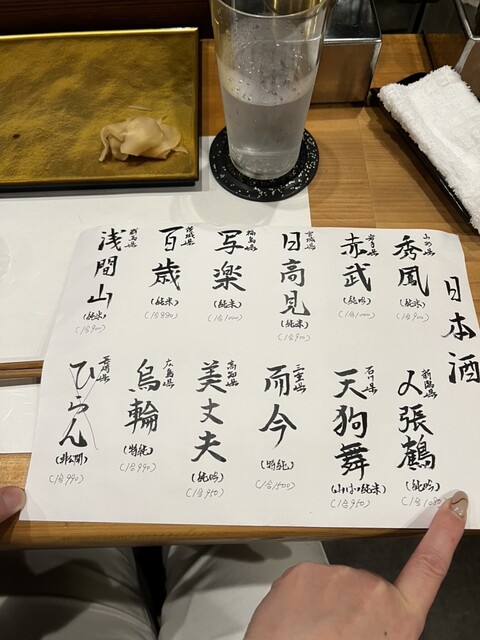 日本酒
山形県
秀鳳
(純米)
(1合900)
岩手県
赤武
(純吟)
(1合1000)
宮城県
日高見
(純米)
(1合900)
福島県
写楽
(純米)
(1合1000)
茨城県
百歳
(純米)
(1合880)
群馬県
浅間山
(純米)
(1合900)
新潟県
〆張鶴
(純吟)
(1合1080)
石川県
天狗舞
(山廃純米)
(1合950)
三重県
而今
(特純)
(1合1500)
高知県
美丈夫
(純吟)
(1合950)
広島県
烏輪
(特純)
(1合990)
長崎県
ひらん
(非公開)
(1合990)